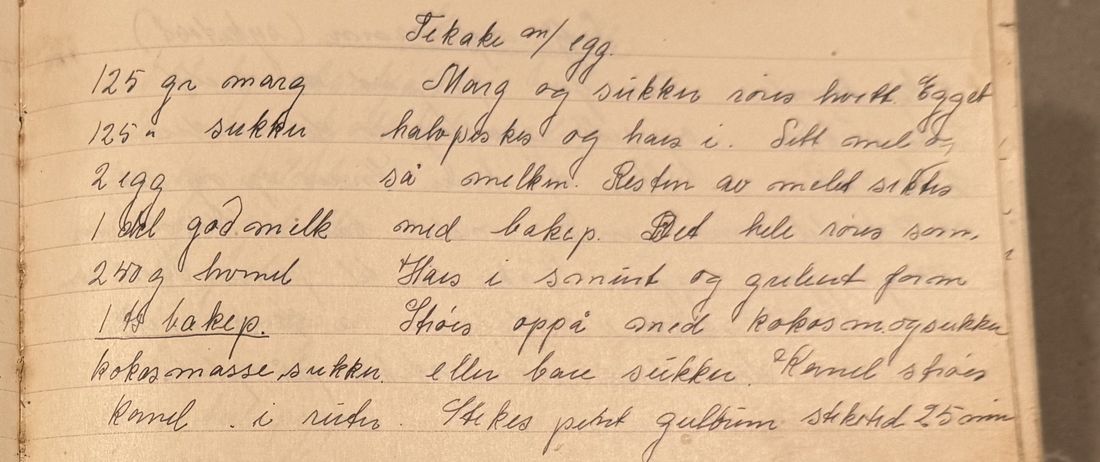 Tekake m/ egg.
125 gr marg Marg og sukker røres hvitt. Egget
125 " sukker halvpiskes og haes i. Sett mel og
2 egg så melken. Resten av melet siktes
1 dl god melk med bakep. Det hele røres som.
250 g hvmel Haes i smurt og grebent form
1 ts bakep. Strøes oppå med kokosm. og sukker
kokosmasse, sukker. eller bare sukker. Kanel strøes
Kanel . i ruter. Stekes pent gulbrun steketid 25 min